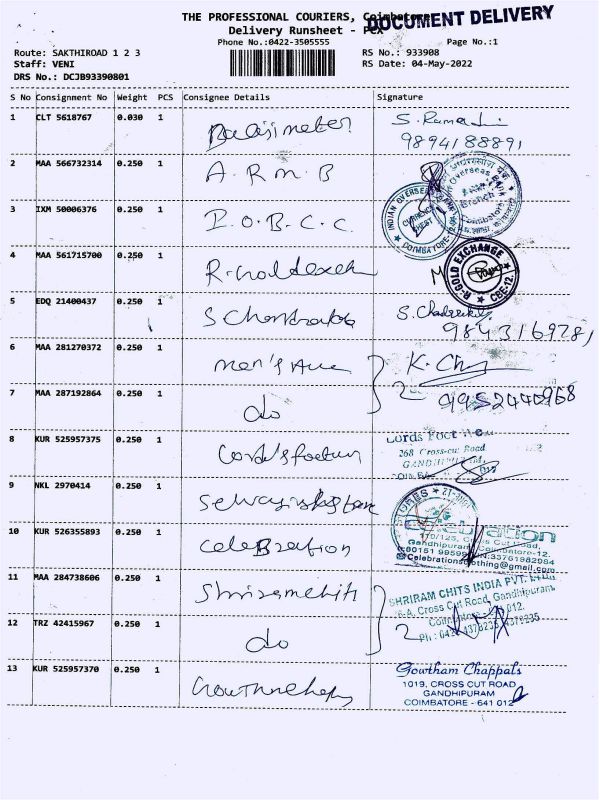 THE PROFESSIONAL COURIERS, Coimbatore
DOCUMENT DELIVERY
Delivery Runsheet - PCX
Phone No.:0422-3505555
Page No.:1
Route: SAKTHIROAD 1 2 3
RS No.: 933908
Staff: VENI
RS Date: 04-May-2022
DRS No.: DCJB93390801
S No Consignment No Weight PCS Consignee Details Signature
1 CLT 5618767 0.030 1 Balajimeter S. Ramadi
9894188891
2 MAA 566732314 0.250 1 A.R.M.B
3 IXM 50006376 0.250 1 I.O.B.C.C.
INDIAN OVERSEAS BANK
CURRENCY CHEST
COIMBATORE
Overseas Bank
Branch
Coimbatore
4 MAA 561715700 0.250 1
R-GOLD EXCHANGE
CBE-12.
5 EDQ 21400437 0.250 1 S Chandrakala S.
9843169781
6 MAA 281270372 0.250 1 men's Ave K.
7 MAA 287192864 0.250 1 do 2 9952440968
8 KUR 525957375 0.250 1 Lord's footwear
Lords Foot Wear
268 Cross-cut Road
GANDHIPURAM,
9 NKL 2970414 0.250 1
STORES
10 KUR 526355893 0.250 1 CeleBration
Celebration
110/125, Cross Cut Road,
Gandhipuram, Coimbatore-12.
Celebrationsclothing@gmail.com
11 MAA 284738606 0.250 1 Shriramchits
SHRIRAM CHITS INDIA PVT. LTD
6-A, Cross Cut Road, Gandhipuram,
Coimbatore - 641 012.
12 TRZ 42415967 0.250 1 do 2
Ph : 0422 4378235, 4379235
13 KUR 525957370 0.250 1
Gowtham Chappals
1019, CROSS CUT ROAD
GANDHIPURAM
COIMBATORE - 641 012